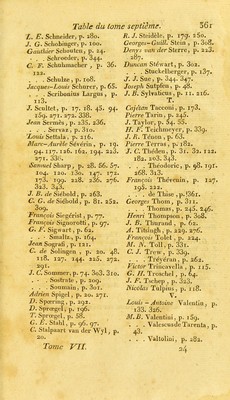 Table du tome septième. 561
L. E. Schneider, p. 280.
J. G. Schobinger, p. 100.
Gauthier Schouten, p. 24.
. . Schroeder, p. 344.
C. F. Schuhmacher, p. 36.
122.
. . Schulze, p. 108.
Jacques-Louis Schürer, p. 65.
. . Scribonius Largus, p.
113.
J. Scultet, p. 17. 18. 45. 94.
159. 271. 272. 338.
Jean Sermès, p. 235. 336.
. . Servaz, p. 310.
Louis Settala, p. 216.
Marc-Aurèle Sévérin, p. 19.
94. 117. 126. 162. 194. 223.
271. 336.
Samuel Sharp, p. 28. 56. 57.
104. 120. 130. 147. 172.
173. 199. 228. 236. 276.
323. 343.
J. B. de Siébold, p. 263.
C. G. de Siébold, p. 81. 252.
309.
François Siegérist, p. 77.
François Signorotti, p. 97.
G. F. Sigwart, p. 62.
. . Smaltz, p. 164.
Jean Sografi, p. 121.
C. de Solingen, p. 20. 48.
118. 127. 144. 225. 272.
291.
J. C. Sommer, p. 74. 303. 310.
. . Sostrate, p. 209.
. . Soumain, p. 301.
Adrien Spigel, p. 20. 271.
D. Spæring, p. 292.
D. Sprœgel, p. 196.
T. Sprœgel, p. 58.
G. E. Stahl, p. 96. 97.
C. Stalpaart van der Wyl, p.
20.
Tome VII.
R. J. Steidèle, p. 179. 150.
Georges-Guill. Stein, p. 308.
Denys van der Sterre, p. 223.
287.
Duncan Stéwart, p. 302.
. . Stuckelberger, p. 137.
J. J. Sue, p. 344. 347.
Joseph Sutpfen, p. 48.
J. B. Sylvaticus, p. 11. 216.
T.
Cajétan Tacconi, p. 173.
Pierre Tarin, p. 245.
J. Taylor, p. 54. 55.
H. F. Teichmeyer, p. 339.
J. R. Ténon, p. 63.
Pierre Terras, p. 182.
J. C. Théden, p. 31. 32. 122.
182. 203. 343.
. . Théodoric, p. 98. 191.
268. 313.
François Thévenin, p. 127.
192. 222.
. . de Thise, p. 361.
Georges Thom, p. 311.
. . Thomas, p. 245. 246.
Henri Thompson, p. 308.
J. B. Thurand, p. 61.
A. Titsingh, p. 229. 276.
François Tolet, p. 224.
M. N. Toll, p. 331.
C. J. Trew, p. 339.
. . Tréyéran, p. 262.
Victor Trincavella, p. 115.
G. H. Troschel, p. 64.
J. F. Tschep, p. 323.
Nicolas Tulpius, p. 118.
V.
Louis-Antoine Valentin, p.
133. 326.
M. B. Valentini, p. 159.
. . Valescus de Tarenta, p.
43.
. . Valtolini, p. 282.